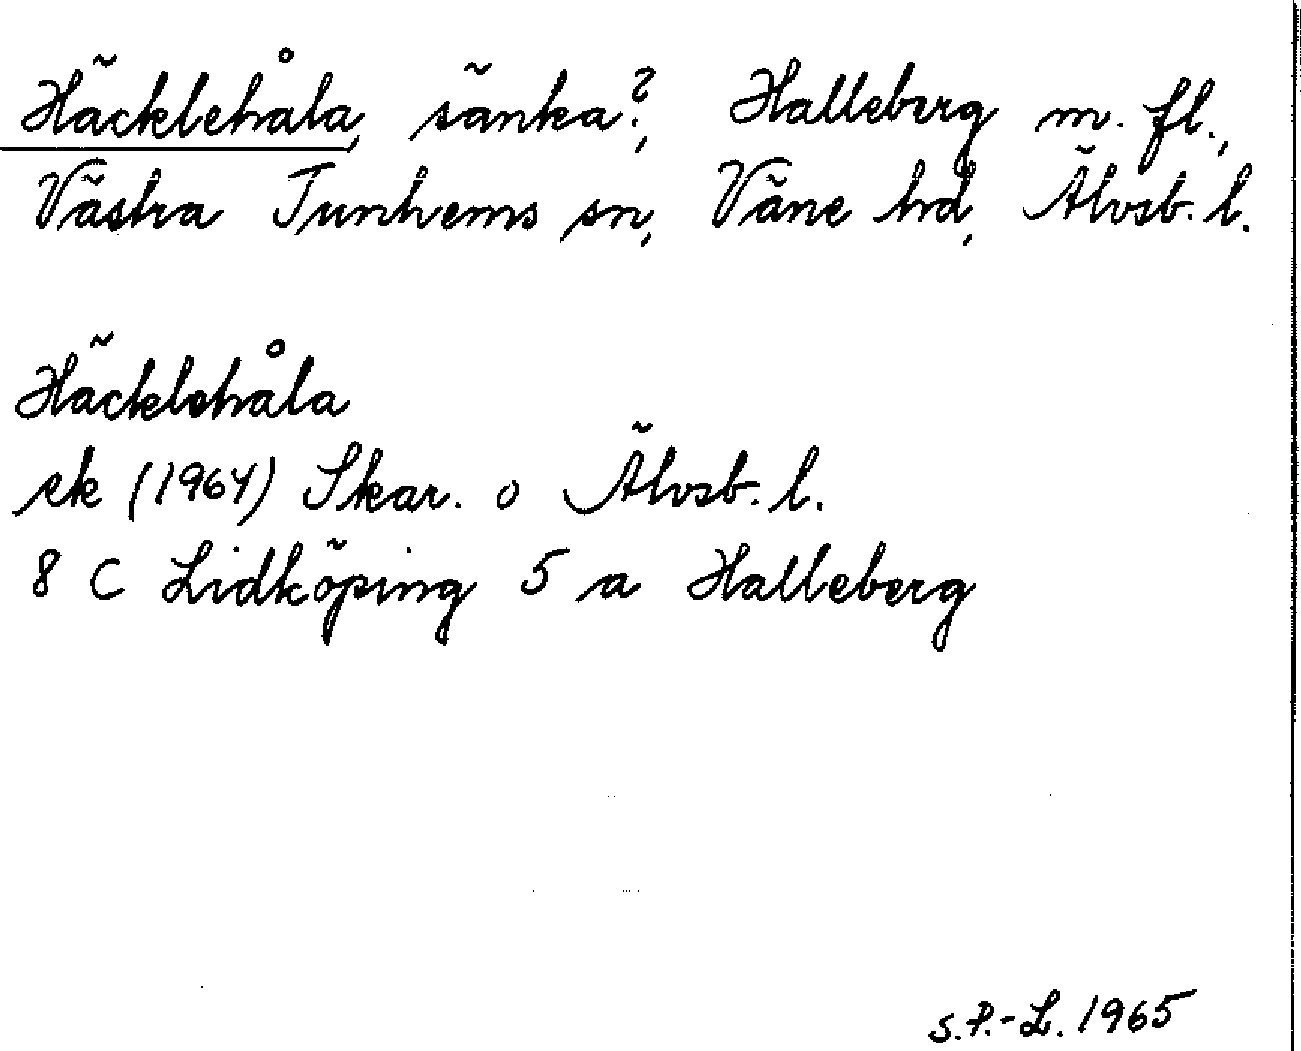 Häcklehåla, sänka?, Halleberg m. fl.,
Västra Tunhems sn, Väne hd, Älvsb. l.
Häcklehåla
ek (1964) Skar. o Älvsb. l.
8 C Lidköping 5 a Halleberg
S.P.-L. 1965